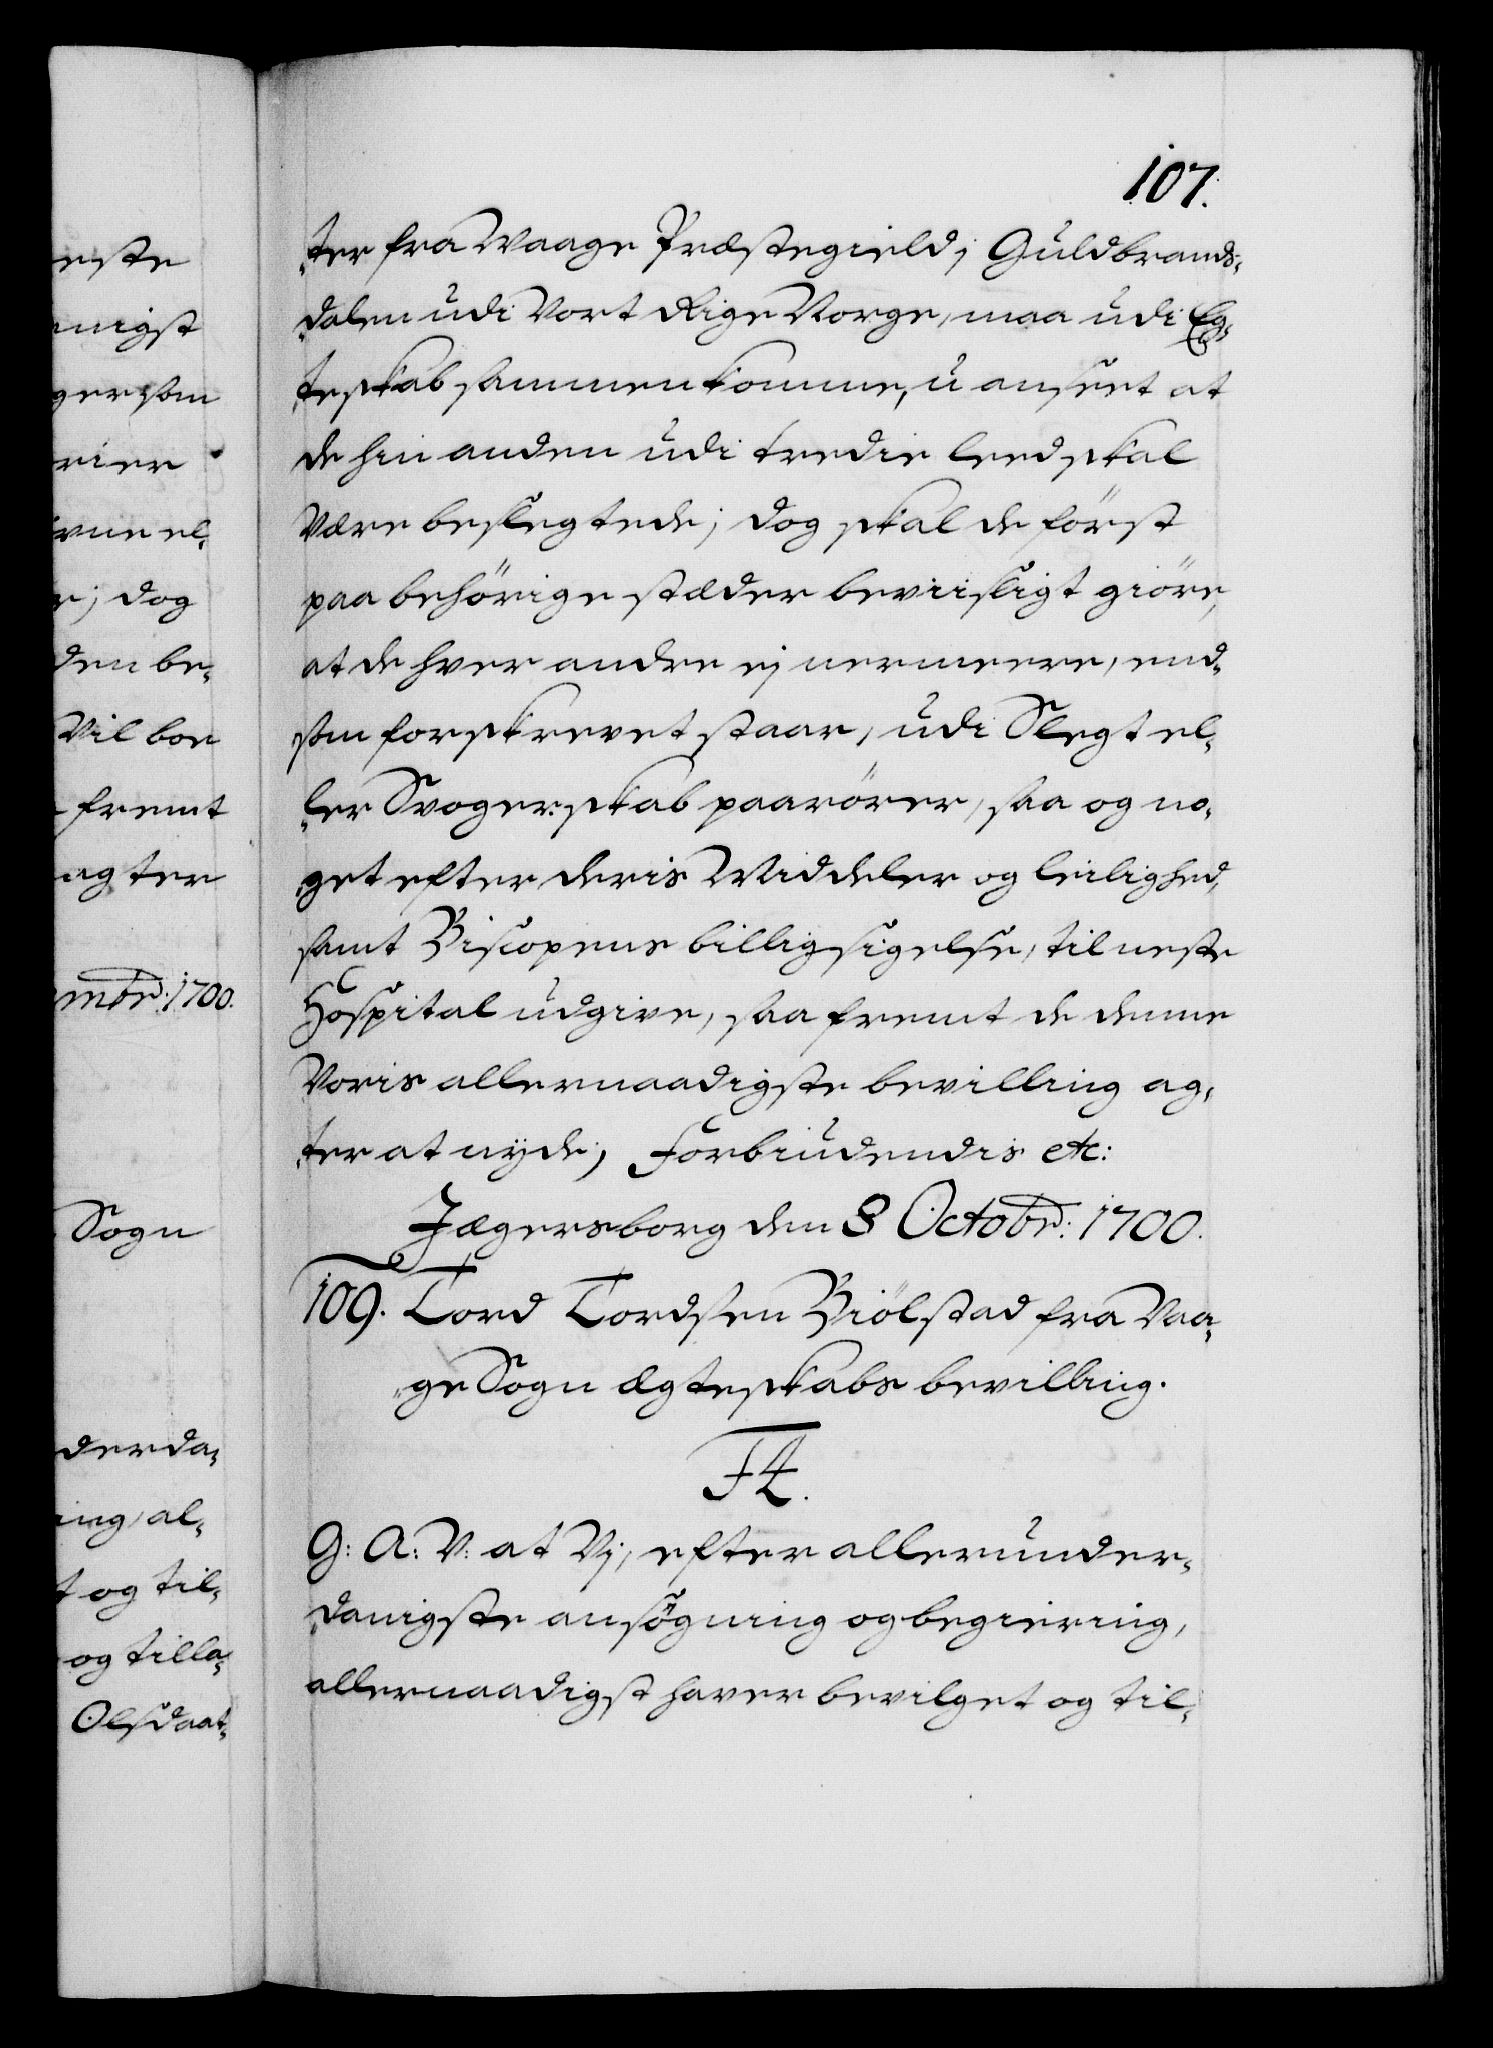 107.
ter fra Waage Præstegield i Guldbrands-
dalen udi Vort Rige Norge, maa udi Eg-
teskab sammenkomme, u anseet at
de hin anden udi tredie leed skal
være beslegtede; dog skal de først
paa behörige stæder beviisligt giöre,
at de hver andre ej nermeere, end
som forskrevet staar, udi Slegt el-
ler Svogerskab paarörer, saa og no-
get efter deris Middeler og leilighed,
samt Biscopens billigsigelse, til neste
Hospital udgive, saa fremt de denne
Voris allernaadigste bevilling ag-
ter at nyde; Forbiudendis etc:
Jægersborg den 8 Octobr: 1700.
109. Tord Tordsen Biölstad fra Vaa-
ge Sogn ægteskabs bevilling.
F4.
G: A: V: at Vj, efter allerunder-
danigste ansögning og begiering,
allernaadigst haver bevilget og til-
este
nigst
ger som
rier
vne el-
r; dog
den be-
Vil boe
fremt
agter
mbr: 1700.
Sogn
derda-
ing, al-
t og til-
og tilla-
Olsdaat-